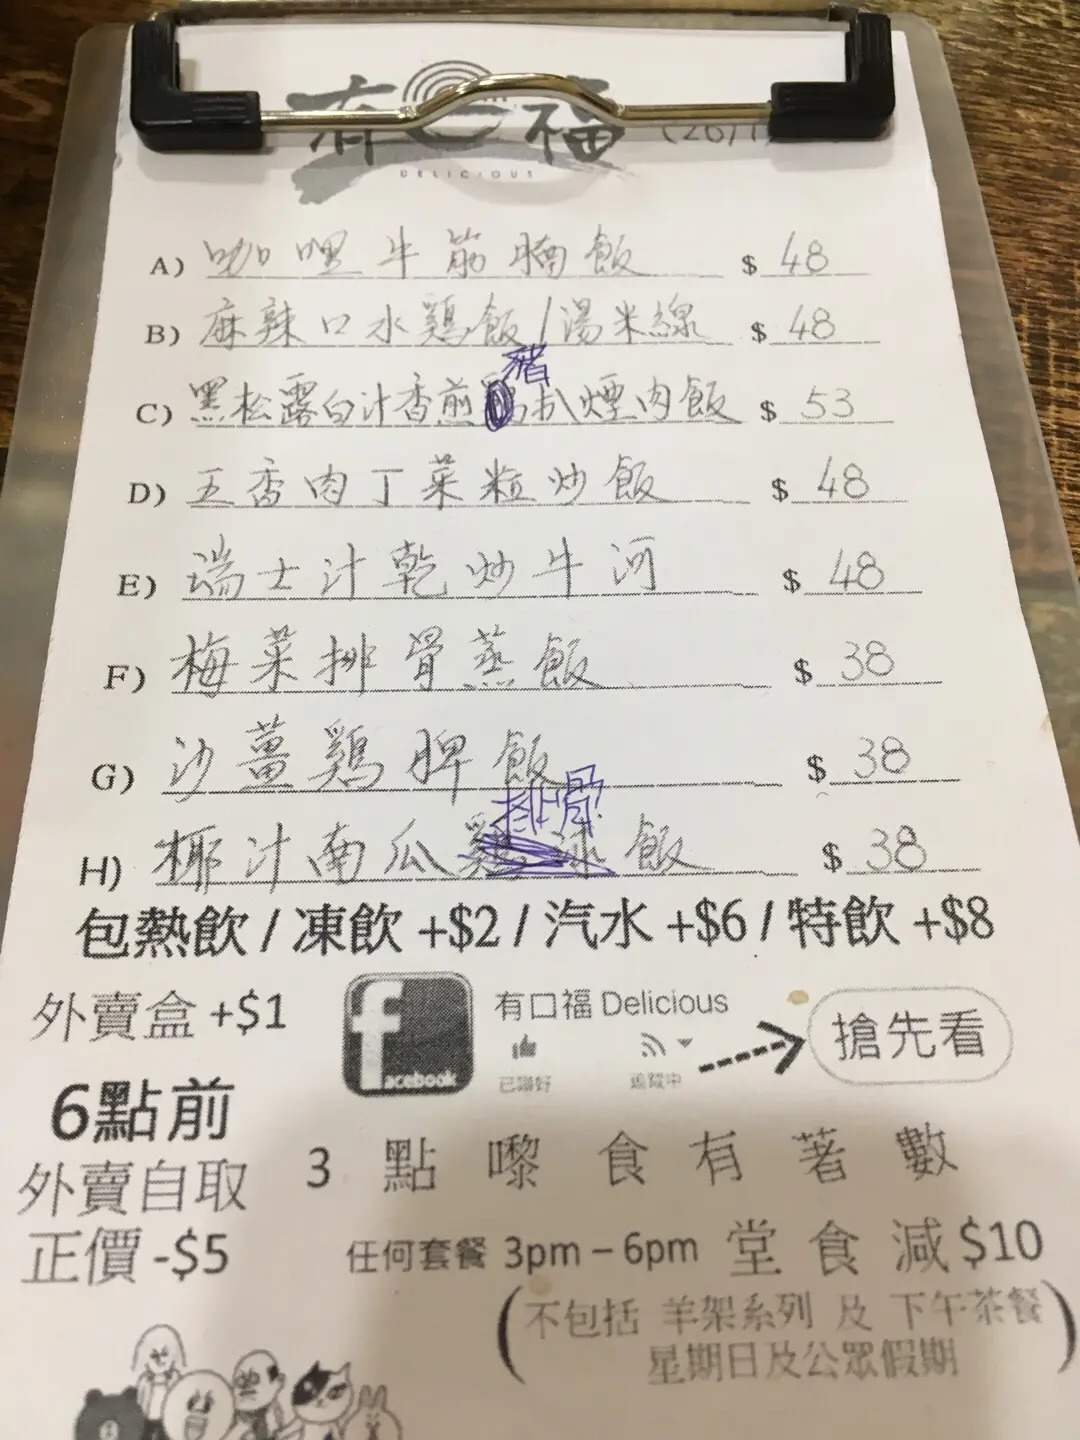 有口福 (26/1
DELICIOUS
A) 咖哩牛筋腩飯 $ 48
B) 麻辣口水鷄飯/湯米線 $ 48
C) 黑松露白汁香煎豬扒煙肉飯 $ 53
D) 五香肉丁菜粒炒飯 $ 48
E) 瑞士汁乾炒牛河 $ 48
F) 梅菜排骨蒸飯 $ 38
G) 沙薑鷄脾飯 $ 38
H) 椰汁南瓜排骨飯 $ 38
包熱飲 / 凍飲 +$2 / 汽水 +$6 / 特飲 +$8
外賣盒 +$1
facebook
有口福 Delicious
已讚好 追蹤中
搶先看
6點前
外賣自取
正價 -$5
3 點 嚟 食 有 著 數
任何套餐 3pm – 6pm 堂 食 減 $10
(不包括 羊架系列 及 下午茶餐
星期日及公眾假期)